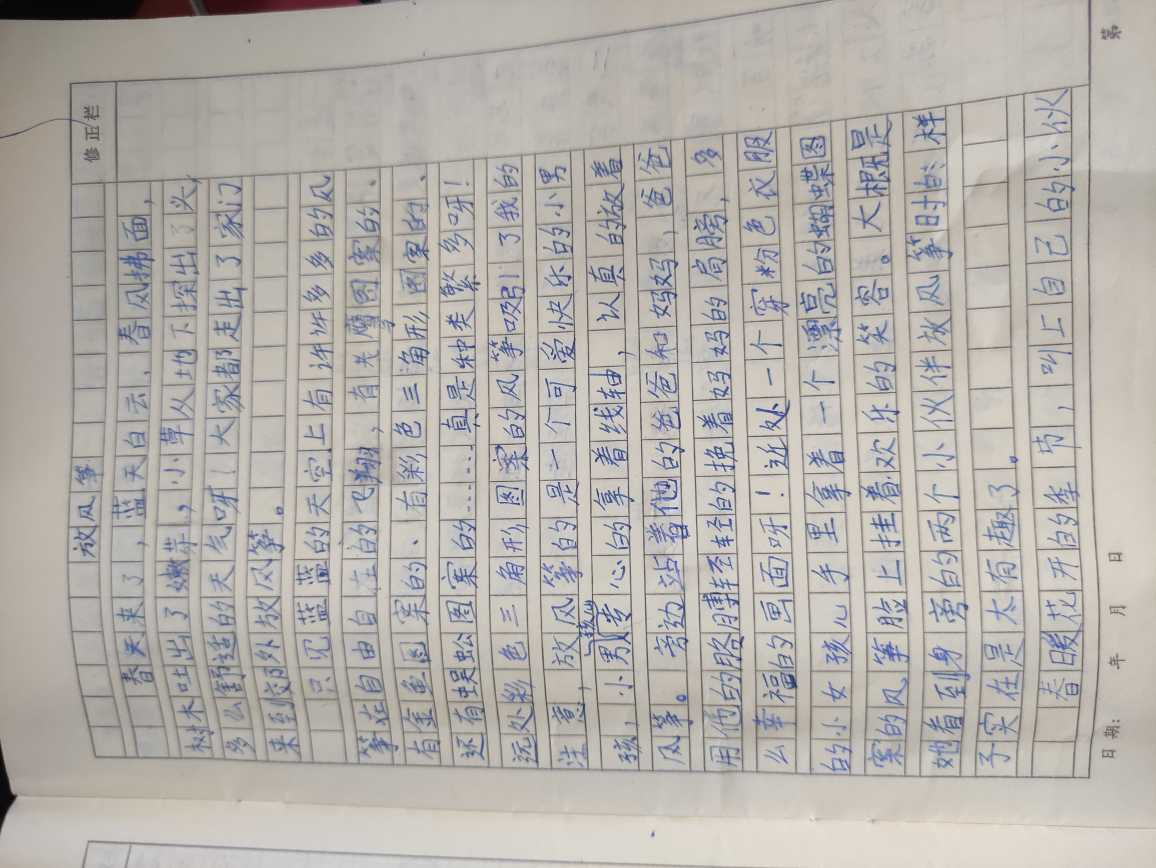 修正栏
放风筝
春天来了，蓝天白云，春风拂面，
树木吐出了嫩芽，小草从地下探出了头，
多么舒适的天气呀！大家都走出了家门
来到郊外放风筝。
只见蓝蓝的天空上有许许多多的风
筝在自由自在的飞翔，有老鹰图案的、
有金鱼图案的、有彩色三角形图案的、
还有蜈蚣图案的……真是种类繁多呀！
远处彩色三角形图案的风筝吸引了我的
注意，放风筝的是一个可爱快乐的小男
孩，小男孩专心的拿着线轴，认真的放着
风筝。旁边站着他的爸爸和妈妈，爸爸
用他的胳膊轻轻的挽着妈妈的肩膀，多
么幸福的画面呀！近处一个穿粉色衣服
的小女孩儿手里拿着一个漂亮的蝴蝶图
案的风筝脸上挂着欢乐的笑容。大概是
她看到身旁的两个小伙伴放风筝时的样
子实在是太有趣了。
春暖花开的季节，叫上自己的小伙
日期： 年 月 日
第